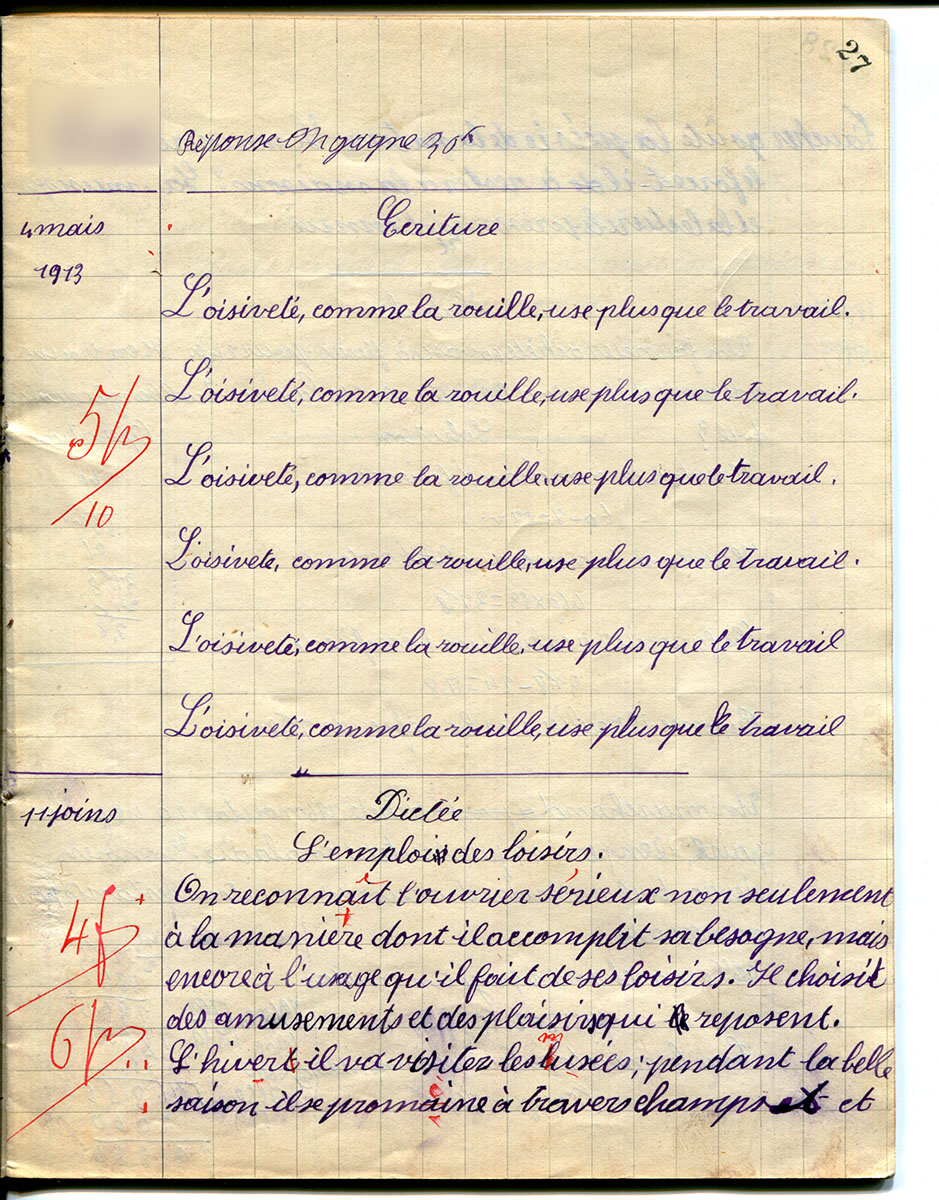 27
Réponse On gagne 30f
4 mais
1913
Ecriture
L'oisiveté, comme la rouille, use plus que le travail.
L'oisiveté, comme la rouille, use plus que le travail.
L'oisiveté, comme la rouille, use plus que le travail.
L'oisivete, comme la rouille, use plus que le travail.
L'oisiveté, comme la rouille, use plus que le travail
L'oisiveté, comme la rouille, use plus que le travail
5
10
11 joins
Dictée
L'emploi des loisirs.
On reconnaît l'ouvrier sérieux non seulement
à la manière dont il accomplit sa besogne, mais
encore à l'usage qu'il fait de ses loisirs. Il choisit
des amusements et des plaisirs qui le reposent.
L'hivert il va visitez les musées; pendant la belle
saison il se promaine à travers champs et
4f
6